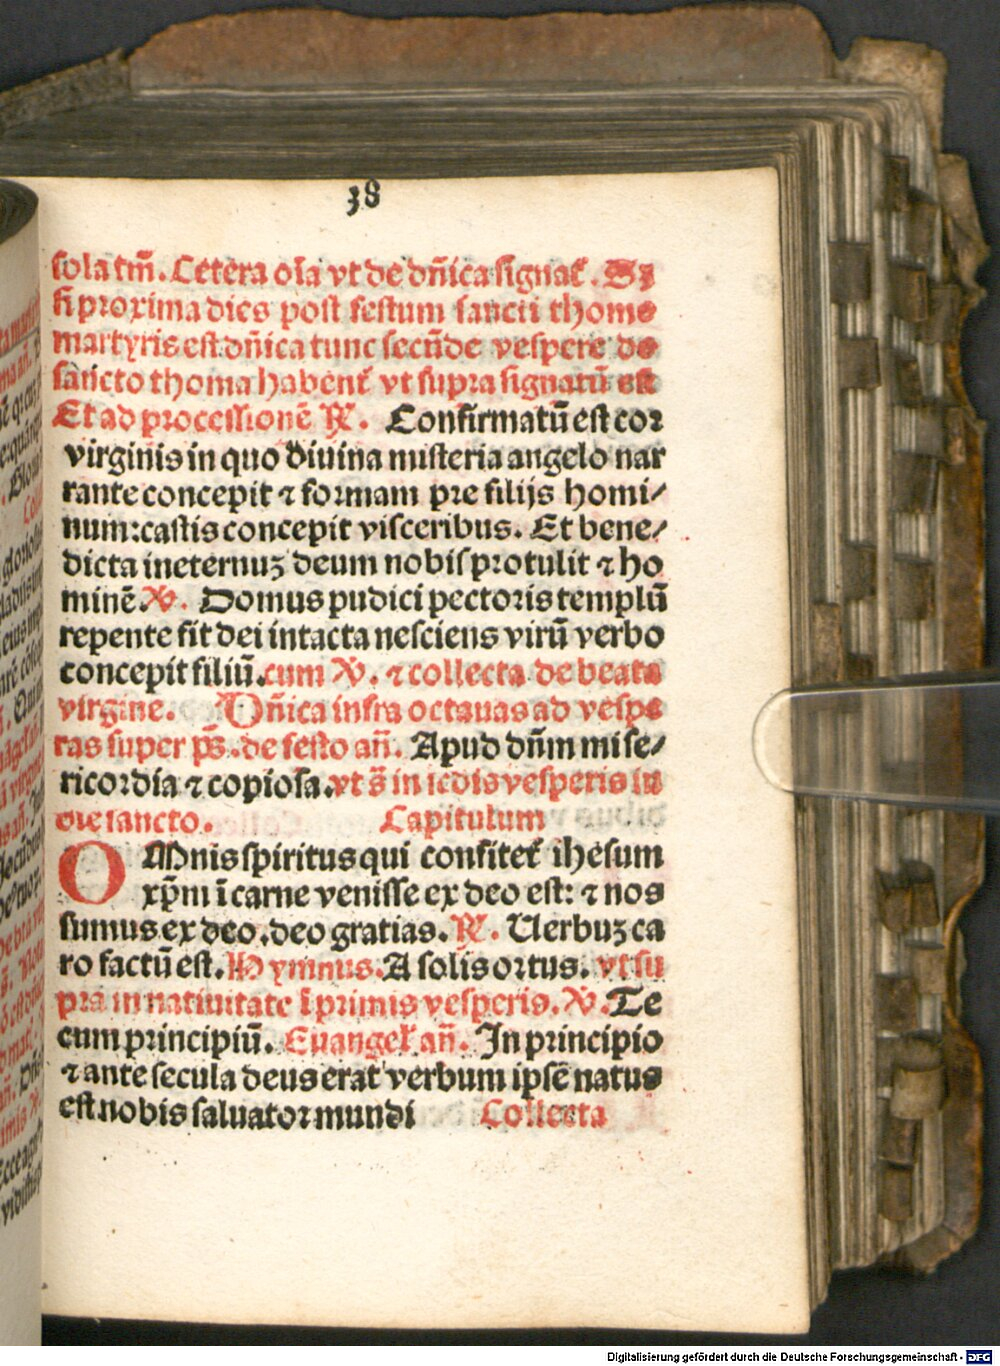 38
sola tm̄. Cetera oīa vt de dn̄ica signat᷑. Si
si proxima dies post festum sancti thome
martyris est dn̄ica tunc secūde vespere de
sancto thoma habent᷑ vt supra signatū est
Et ad processionē ℟. Confirmatū est cor
virginis in quo diuina misteria angelo nar
rante concepit ⁊ formam pre filijs homi/
num:castis concepit visceribus. Et bene/
dicta ineternuʒ deum nobis protulit ⁊ ho
minē. ℣. Domus pudici pectoris templū
repente fit dei intacta nesciens virū verbo
concepit filiū. cum ℣. ⁊ collecta de beata
virgine. Dn̄ica infra octauas ad vespe
ras super ps̄. de festo an̄. Apud dn̄m mise/
ricordia ⁊ copiosa. vt s̄ in scdis vesperis in
die sancto. Capitulum
OMnis spiritus qui confitet᷑ ihesum
xp̄m ī carne venisse ex deo est: ⁊ nos
sumus ex deo. deo gratias. ℟. Uerbuʒ ca
ro factū est. Hymnus. A solis ortus. vt su
pra in natiuitate ī primis vesperis. ℣. Te
cum principiū. Euangel᷑ an̄. In principio
⁊ ante secula deus erat verbum ipse natus
est nobis saluator mundi Collecta
Digitalisierung gefördert durch die Deutsche Forschungsgemeinschaft - DFG